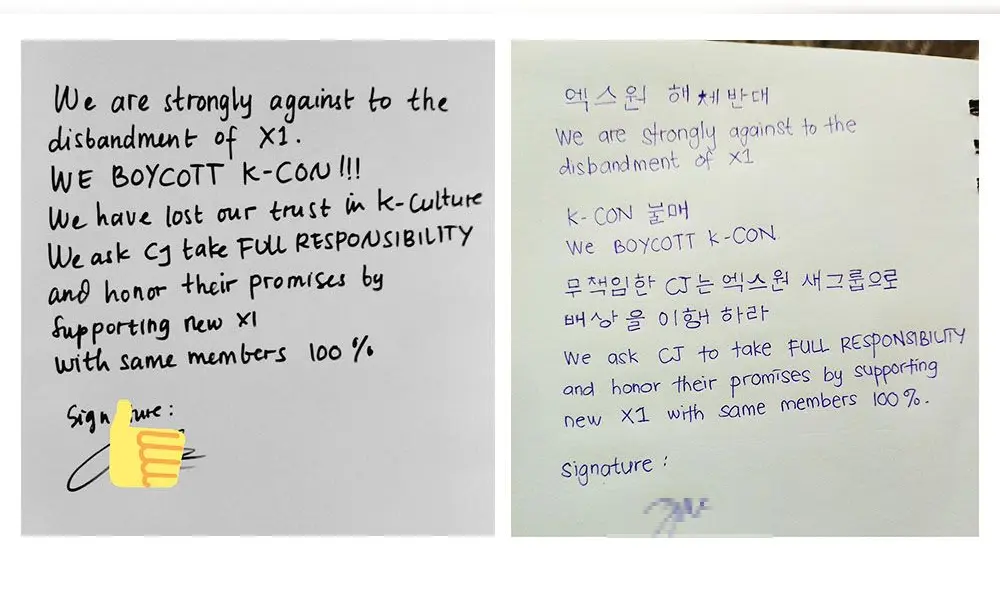 We are strongly against to the
disbandment of X1.
WE BOYCOTT K-CON!!!
We have lost our trust in K-Culture
We ask CJ take FULL RESPONSIBILITY
and honor their promises by
supporting new X1
with same members 100%
Signature:
엑스원 해체반대
We are strongly against to the
disbandment of X1
K-CON 불매
We BOYCOTT K-CON
무책임한 CJ는 엑스원 새그룹으로
배상을 이행하라
We ask CJ to take FULL RESPONSIBILITY
and honor their promises by supporting
new X1 with same members 100%.
Signature: